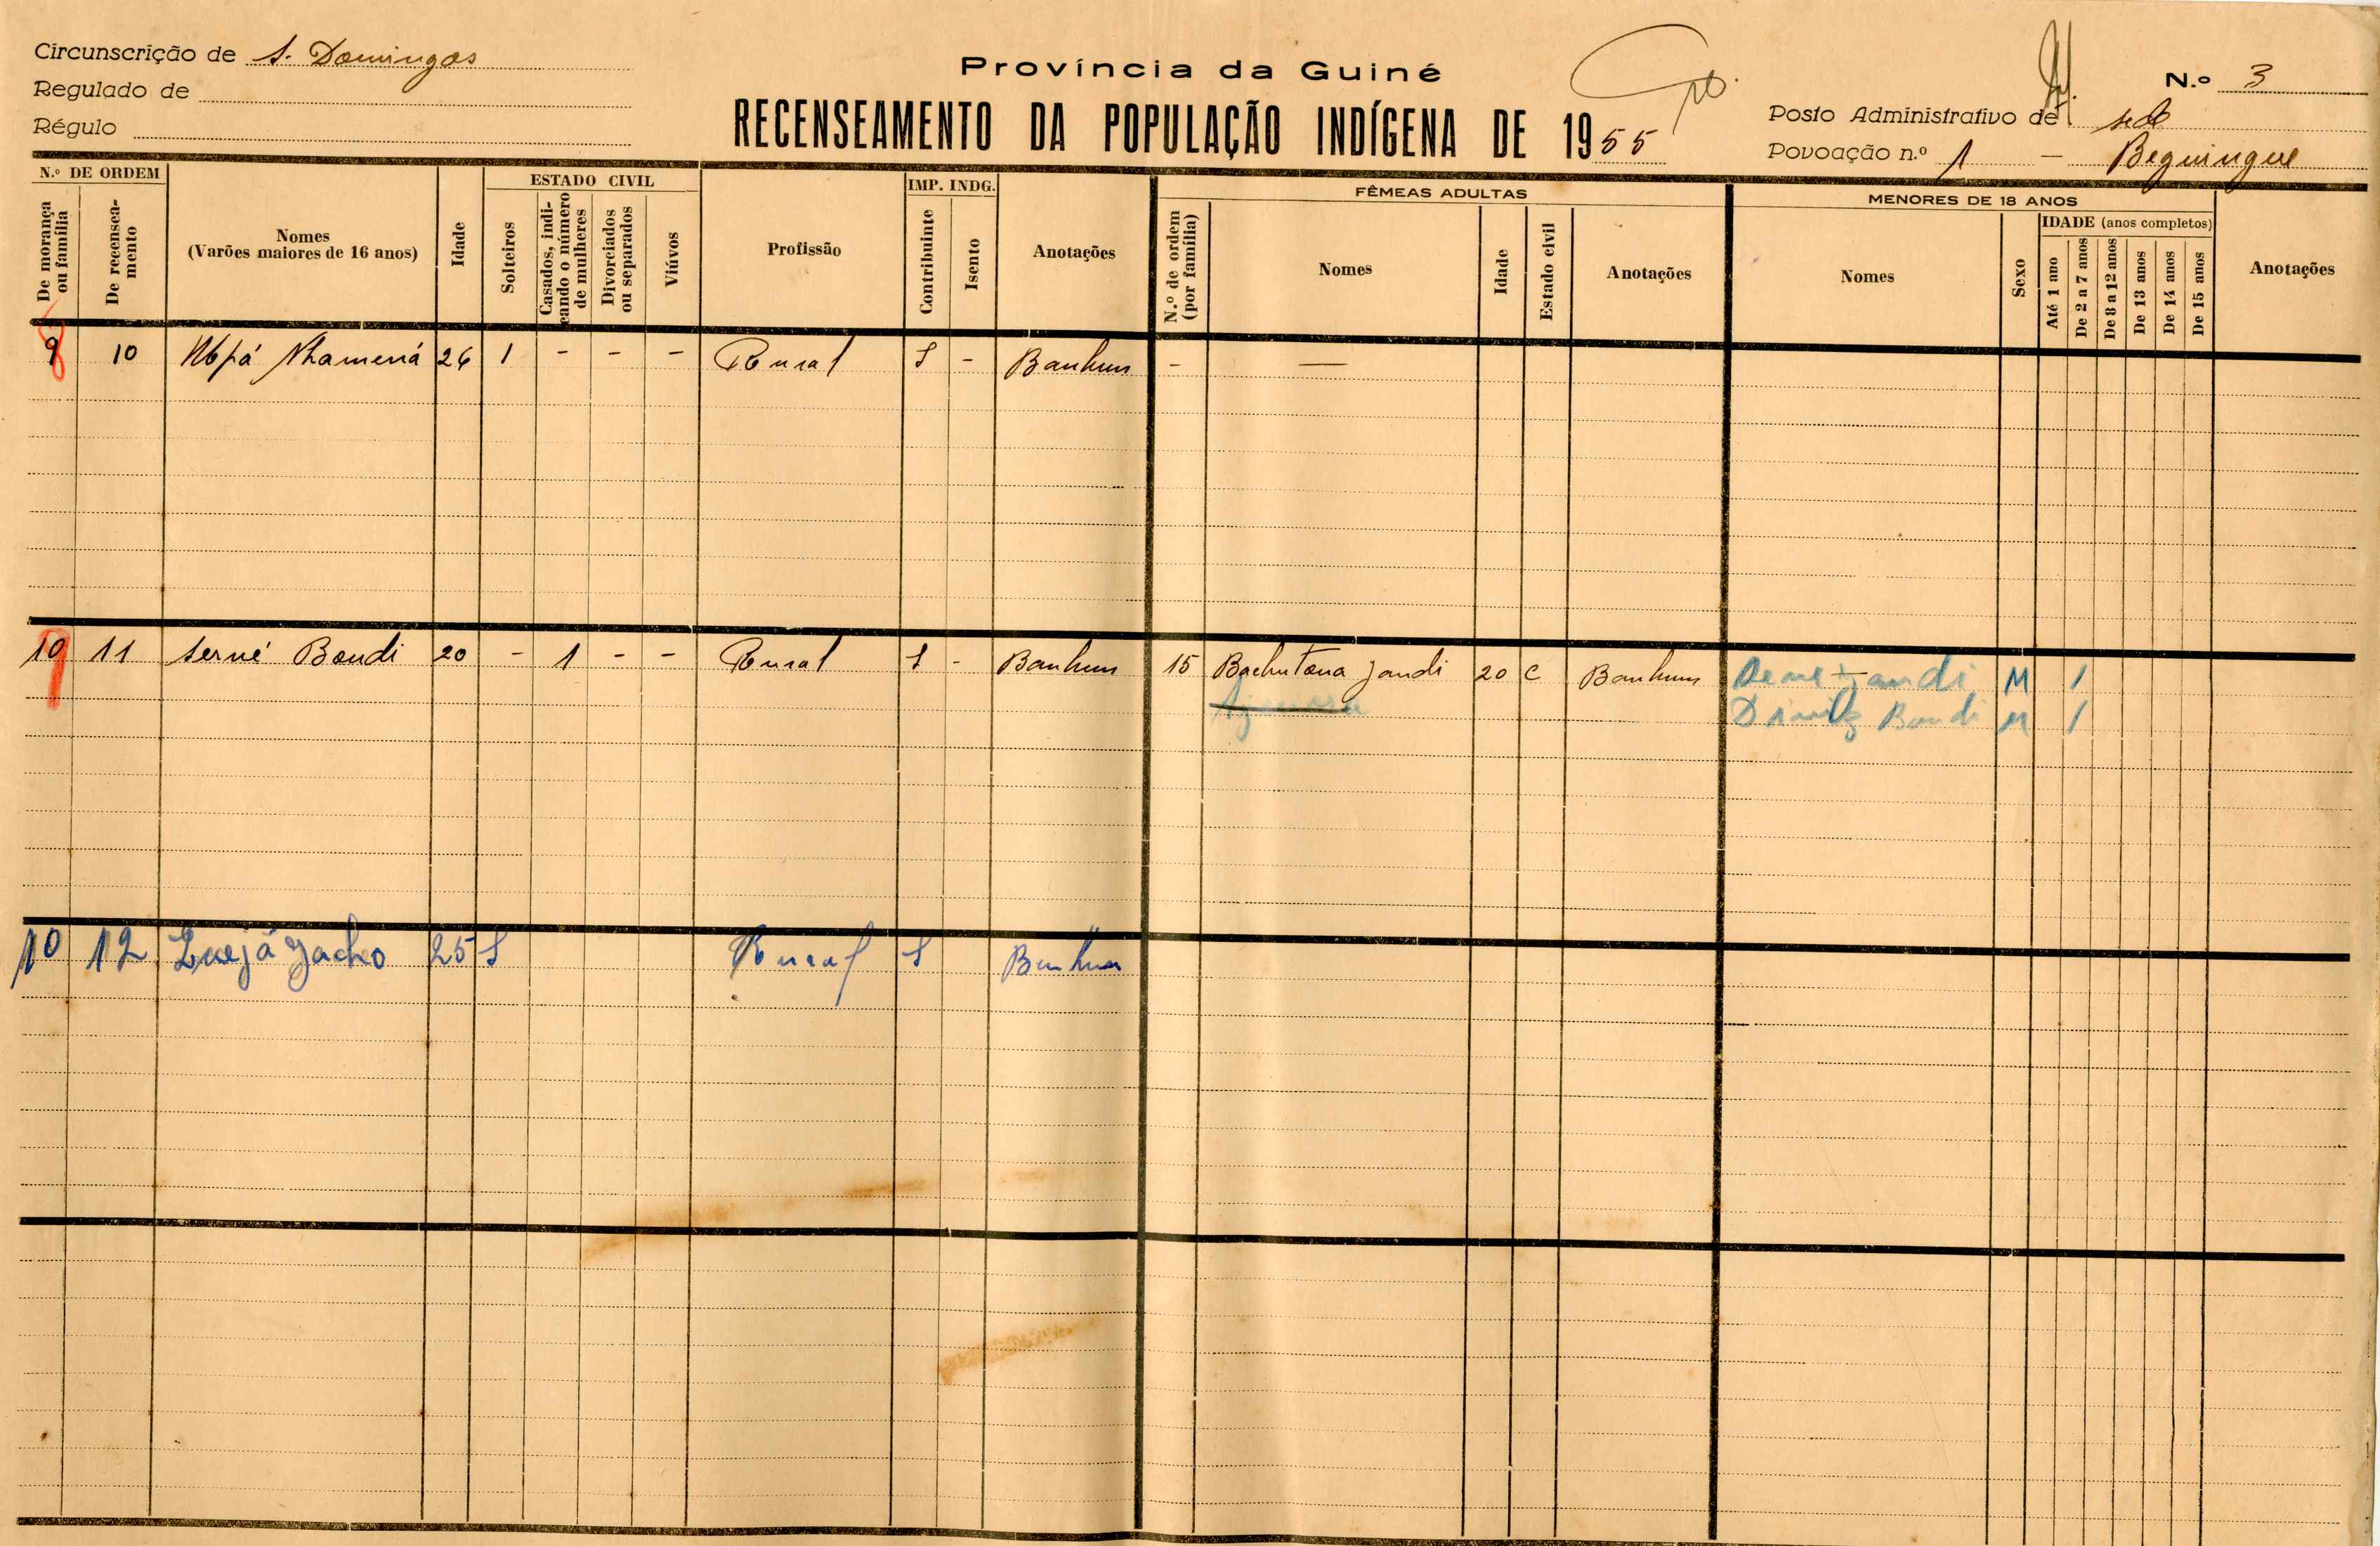 Circunscrição de S. Domingos
Regulado de
Régulo
Província da Guiné
RECENSEAMENTO DA POPULAÇÃO INDÍGENA DE 1955
N.º 3
Posto Administrativo de sede
Povoação n.º 1 - Beguingue
N.º DE ORDEM
De morança ou família
De recenseamento
Nomes
(Varões maiores de 16 anos)
Idade
ESTADO CIVIL
Solteiros
Casados, indicando o número de mulheres
Divorciados ou separados
Viúvos
Profissão
IMP. INDG.
Contribuinte
Isento
Anotações
FÊMEAS ADULTAS
N.º de ordem (por família)
Nomes
Idade
Estado civil
Anotações
MENORES DE 18 ANOS
Nomes
Sexo
IDADE (anos completos)
Até 1 ano
De 2 a 7 anos
De 8 a 12 anos
De 13 anos
De 14 anos
De 15 anos
Anotações
9 8 10 Nhamená 26 1 - - - Rural S - Banhum - —
10 9 11 Serné Bondi 20 - 1 - - Rural S - Banhum 15 Bachutona Jandi 20 C Banhum Jandi M 1
Bondi M 1
10 12 Jacho 25 S Rural S Banhum